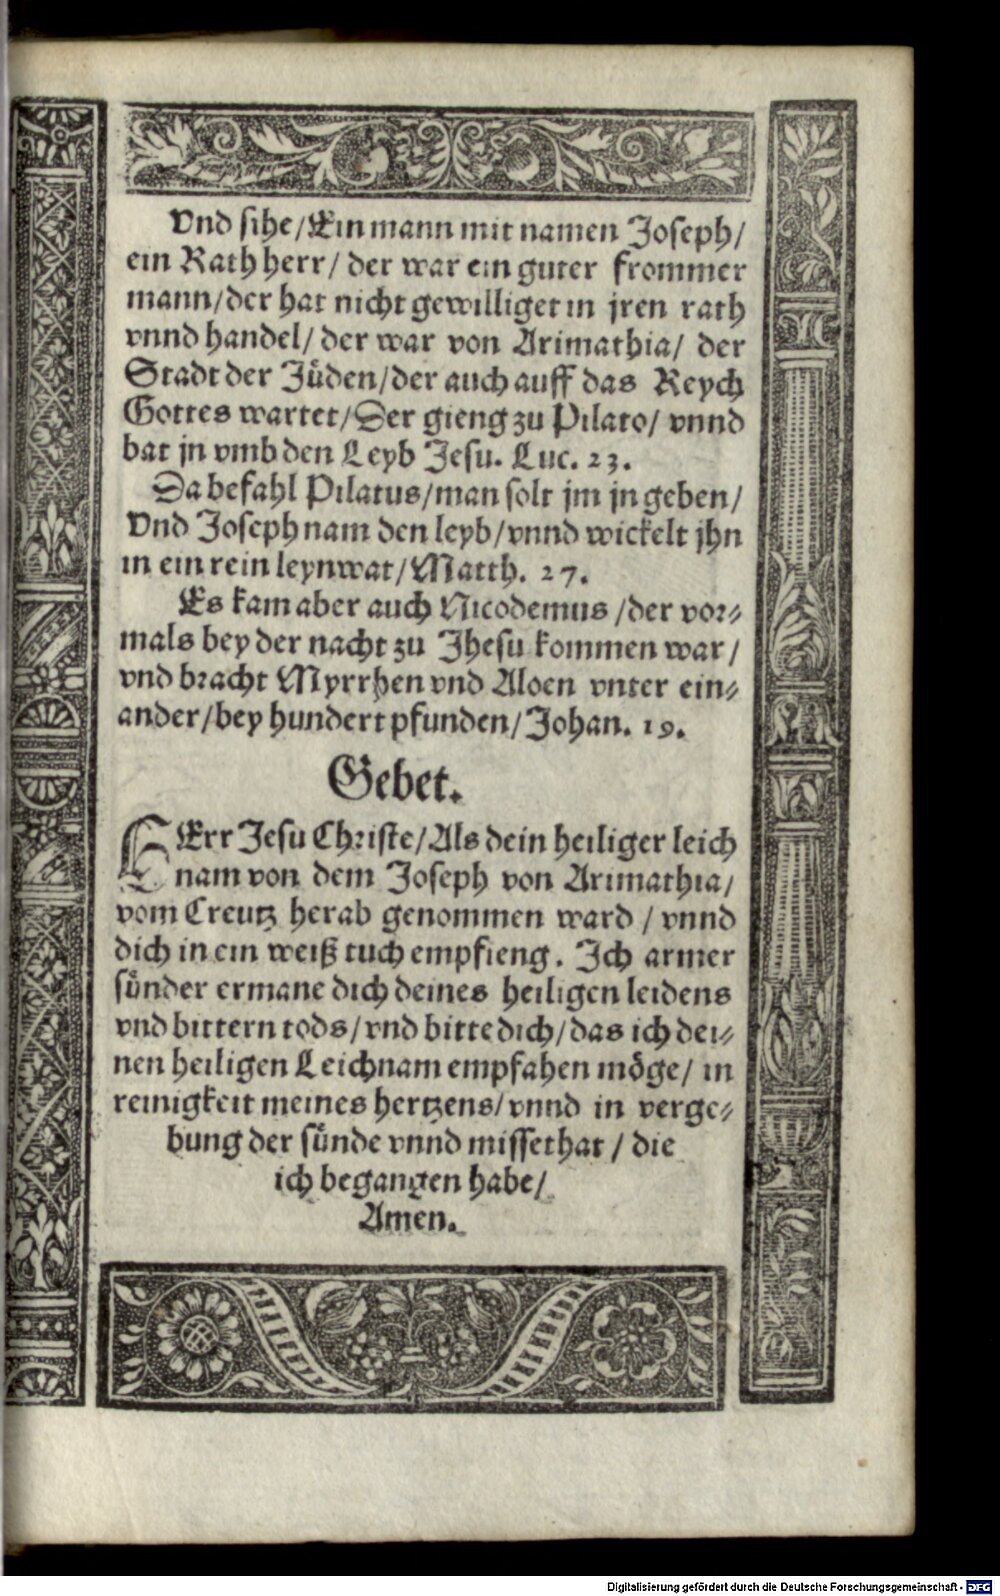 Vnd sihe/Ein mann mit namen Joseph/
ein Rathherr/ der war ein guter frommer
mann/der hat nicht gewilliget in jren rath
vnnd handel/ der war von Arimathia/ der
Stadt der Jüden/der auch auff das Reych
Gottes wartet/Der gieng zu Pilato/ vnnd
bat jn vmb den Leyb Jesu. Luc. 23.
Da befahl Pilatus/man solt jm jn geben/
Vnd Joseph nam den leyb/vnnd wickelt jhn
in ein rein leynwat/Matth. 27.
Es kam aber auch Nicodemus /der vor-
mals bey der nacht zu Jhesu kommen war/
vnd bracht Myrrhen vnd Aloen vnter ein-
ander/bey hundert pfunden/Johan. 19.
Gebet.
HErr Jesu Christe/Als dein heiliger leich
nam von dem Joseph von Arimathia/
vom Creutz herab genommen ward / vnnd
dich in ein weiß tuch empfieng. Ich armer
sünder ermane dich deines heiligen leidens
vnd bittern tods/vnd bitte dich/das ich dei-
nen heiligen Leichnam empfahen möge/ in
reinigkeit meines hertzens/vnnd in verge-
bung der sünde vnnd missethat / die
ich begangen habe/
Amen.
Digitalisierung gefördert durch die Deutsche Forschungsgemeinschaft - DFG